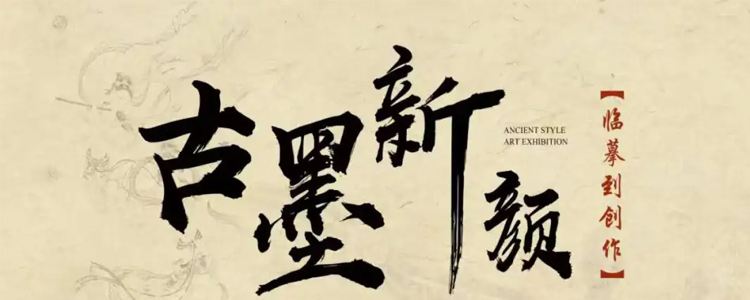 古墨新颜
ANCIENT STYLE
ART EXHIBITION
【临摹到创作】